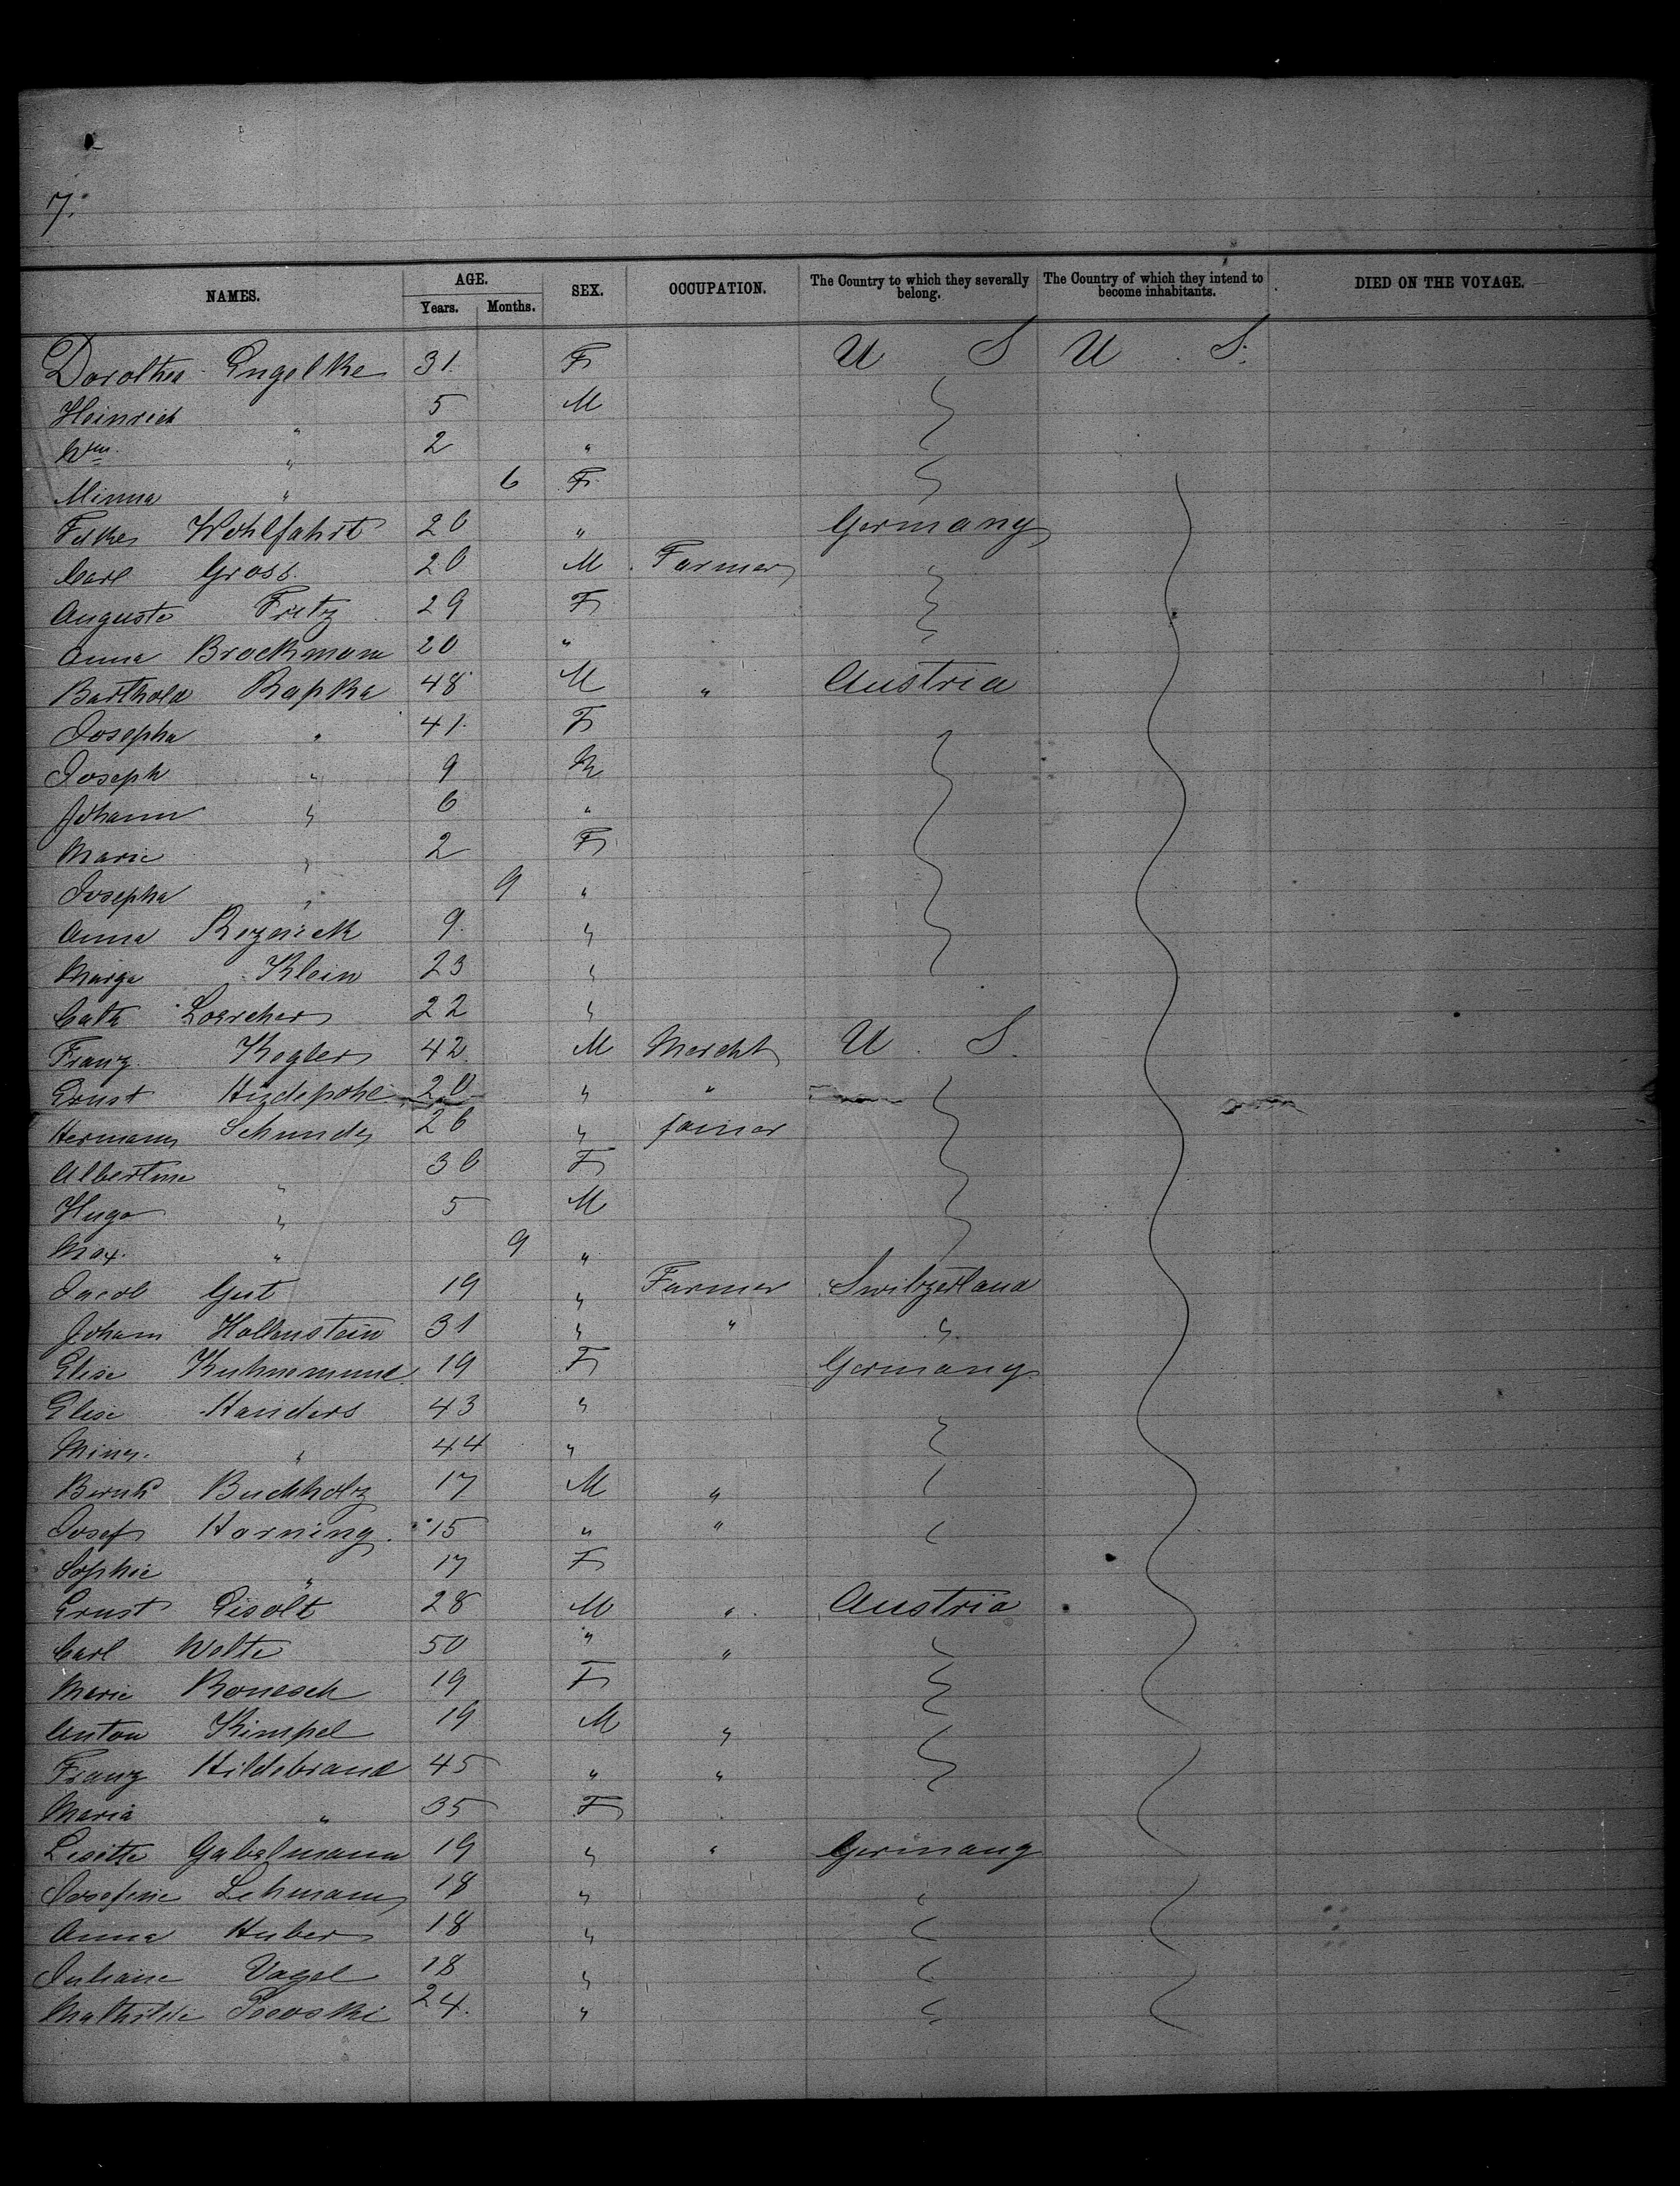 7.
NAMES. AGE. SEX. OCCUPATION. The Country to which they severally belong. The Country of which they intend to become inhabitants. DIED ON THE VOYAGE.
Years. Months.
Dorothea Engelke 31. F U S U. S.
Heinrich " 5 M
Wm. " 2 "
Minna " 6 F
Wohlfahrt 20 " Germany
Carl Gross. 20 M Farmer
Auguste Fritz 29 F
Anna Brockmann 20 "
Barthold Rapka 48 M " Austria
Josepha " 41. F
Joseph " 9 M
Johann " 6 "
Marie " 2 F
Josepha " 9 "
Anna Reznicek 9. "
Marga Klein 23 "
Cath Loercher 22 "
Franz Kegler 42 M Mercht U. S.
Ernst Hudepohl 20 " "
Hermann Schundy 26 " joiner
Albertine " 30 F
Hugo " 5 M
Max. " 9 "
Jacob Gut 19 " Farmer Switzerland
Johann Hollenstein 31 " " "
Elise Kuhnemund 19 F Germany
Elise Handers 43 "
Miny. " 44 "
Bernhd Buchholz 17 M "
Josef Horning. 15 " "
Sophie " 17 F
Ernst Eisolt 28 M " Austria
Carl Wolte 50 " "
Marie Bonesch 19 F
Anton Kimpel 19 M "
Franz Hildebrand 45 " "
Maria " 35 F
Lisette Gabelmann 19 " " Germany
Josefine Lehmann 18 "
Anna Huber 18 "
Juliane Vogel 18 "
Mathilde 24. "